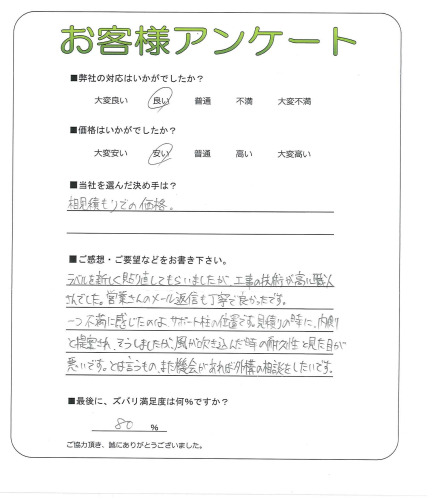 お客様アンケート
■弊社の対応はいかがでしたか？
大変良い 良い 普通 不満 大変不満
■価格はいかがでしたか？
大変安い 安い 普通 高い 大変高い
■当社を選んだ決め手は？
相見積もりでの価格。
■ご感想・ご要望などをお書き下さい。
ラベルを新しく貼り直してもらいましたが、工事の技術が高い職人
さんでした。営業さんのメール返信も丁寧で良かったです。
一つ不満に感じたのは、サポート柱の位置です。見積りの時に、内側
と提案され、そうしましたが、風が吹き込んだ時の耐久性と見た目が
悪いです。とは言うもの、また機会があれば外構の相談をしたいです。
■最後に、ズバリ満足度は何％ですか？
80 ％
ご協力頂き、誠にありがとうございました。